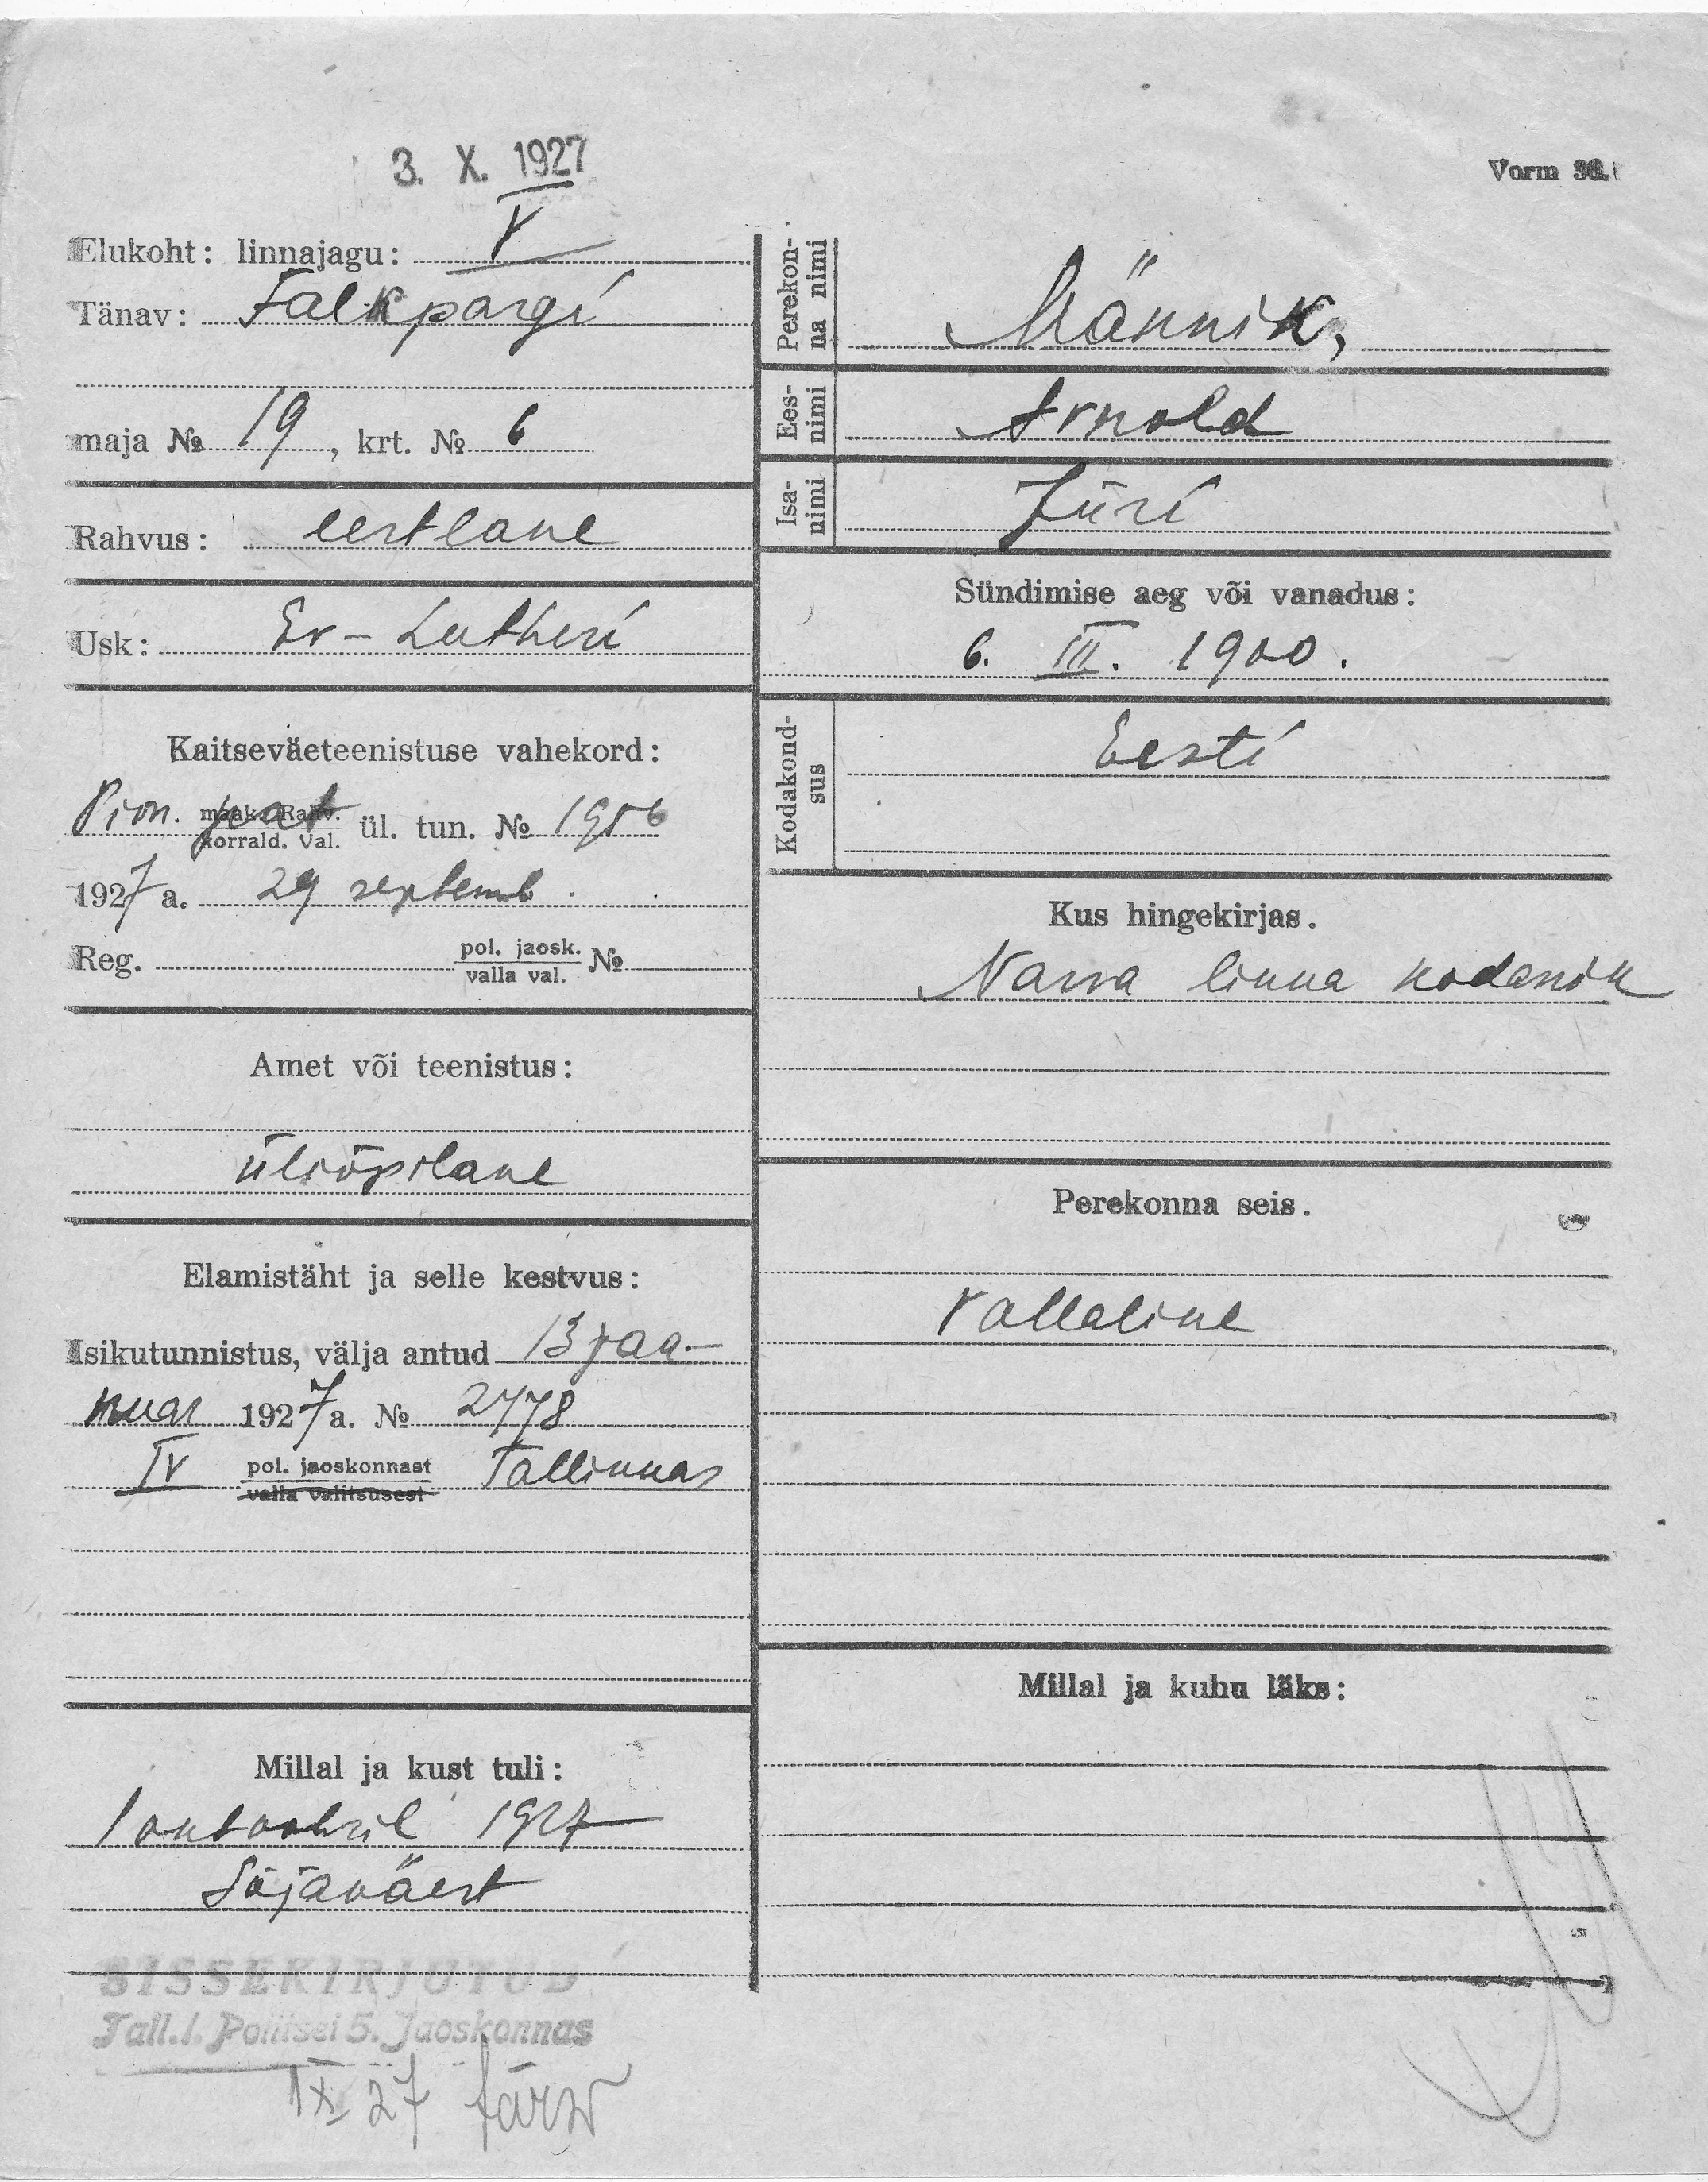 3. X. 1927
Vorm 36.
Elukoht: linnajagu: V
Tänav: Falkpargi
maja № 19, krt. № 6
Rahvus: eestlane
Usk: Ev-Lutheri
Kaitseväeteenistuse vahekord:
Pion. pat maak. Rahv. korrald. val. ül. tun. № 1956
1927 a. 29 septemb.
Reg. pol. jaosk. valla val. №
Amet või teenistus:
üliõpilane
Elamistäht ja selle kestvus:
Isikutunnistus, välja antud 13 jaa-
nuar 1927 a. № 2778
IV pol. jaoskonnast valla valitsusest Tallinnas
Millal ja kust tuli:
1 oktoobril 1927
Sõjaväest
SISSEKIRJUTUD
Tall. l. Politsei 5. Jaoskonnas
1 X 27
Perekon-
na nimi
Männik,
Ees-
nimi
Arnold
Isa-
nimi
Jüri
Sündimise aeg või vanadus:
6. III. 1900.
Kodakond-
sus
Eesti
Kus hingekirjas.
Narva linna kodanik
Perekonna seis.
Vallaline
Millal ja kuhu läks: